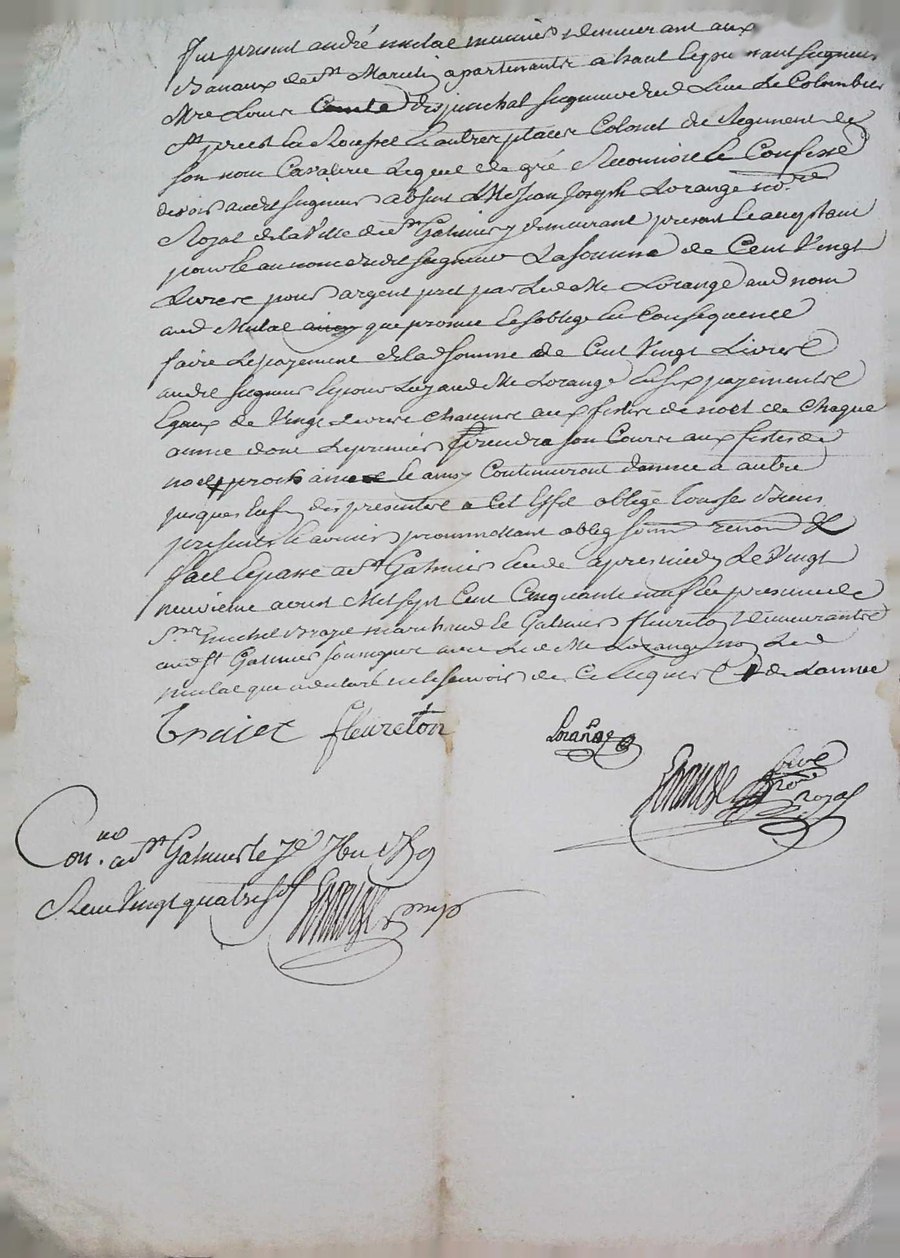 Fut présent andré mulac munier demeurant aux
Banaux de St Marcelin apartenants a haut et pu nant seigneur
Mre Louis Comte Despinchal seigneur dud. Lieu de Colombier
St priest la Rouche et autres places Colonel du Regiment de
son nom Cavalerie Lequel de gré Reconnoit et Confesse
devoir audit seigneur absent Me Jean Joseph Lorange nore
Royal de la Ville de St Galmier y demeurant present et acceptant
pour et au nom dudit seigneur La somme de Cent Vingt
Livres pour argent pret par Led. Me Lorange aud nom
aud Mulac que promet et soblige En Consequence
faire Le payement de lad somme de Cent Vingt Livres
audit seigneur et pour Luy aud Me Lorange En six payements
Egaux de Vingt Livres chacuns aux festes de noel de chaque
année dont Le premier prendra son Cours aux festes de
noel prochaines et ainsy Continueront dannée a autre
jusques En fin des presentes a Cet Effet obligé Tous ses biens
presents et avenir promettant oblig soum renon &
fait et passé a St Galmier Etude apres midy Le Vingt
neuvieme aoust Mil sept Cent Cinquante neuf En presence de
Sr michel marchand et fleureton demeurants
aud St Galmier soussignés avec Led Me Lorange non Led
mulac qui a declaré ne le sçavoir de Ce Enquis
fleureton
Lorange
Royal
Con.lé a St Galmier le 7e 7bre 1759
Reçu Vingt quatre sols